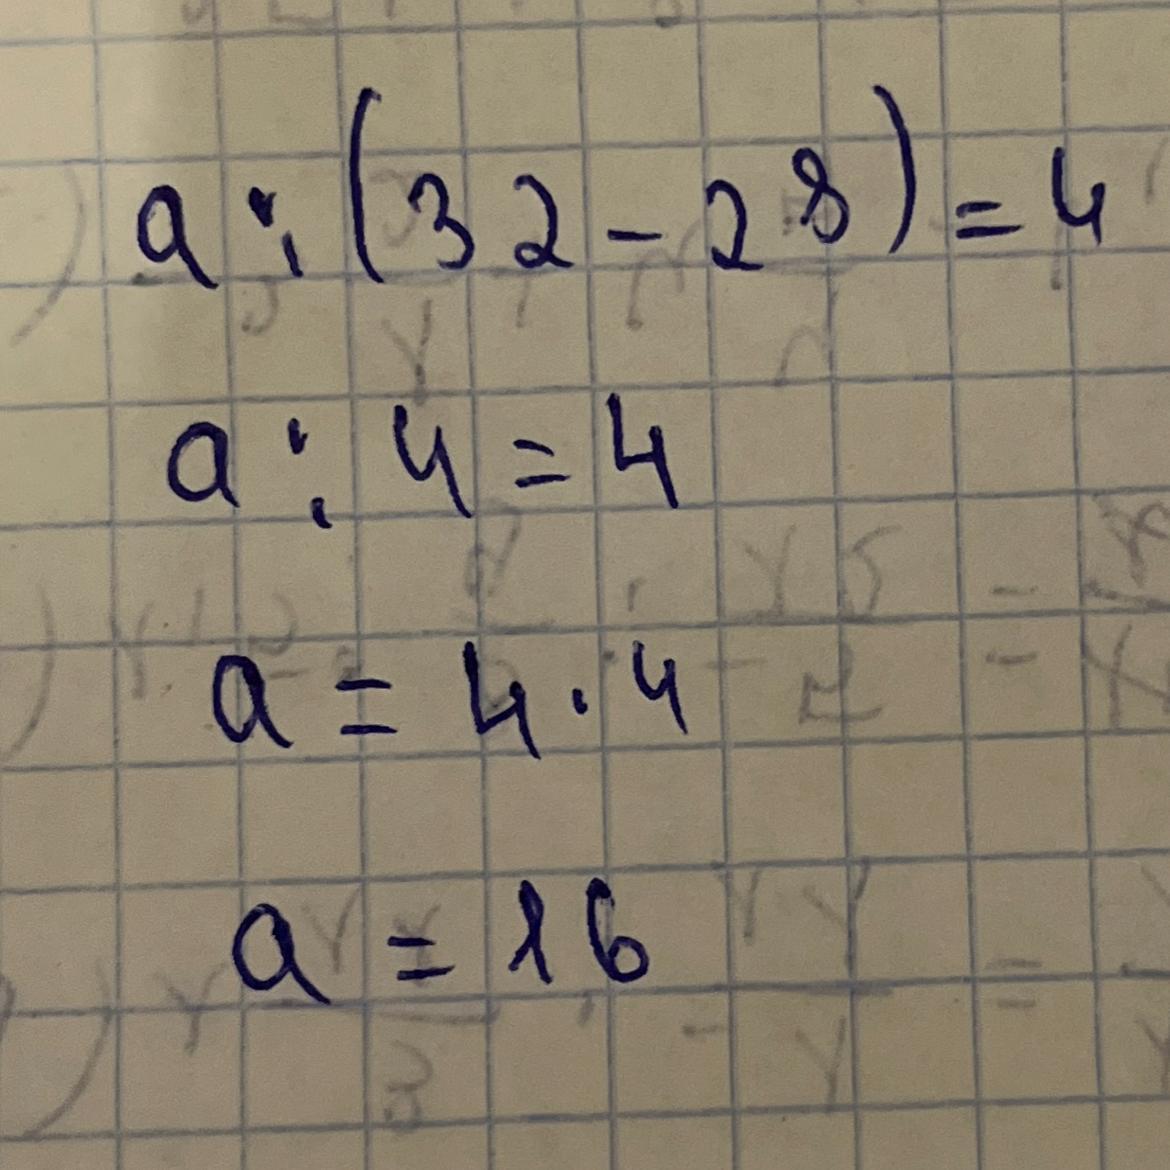 a : (32 - 28) = 4
a : 4 = 4
a = 4 · 4
a = 16